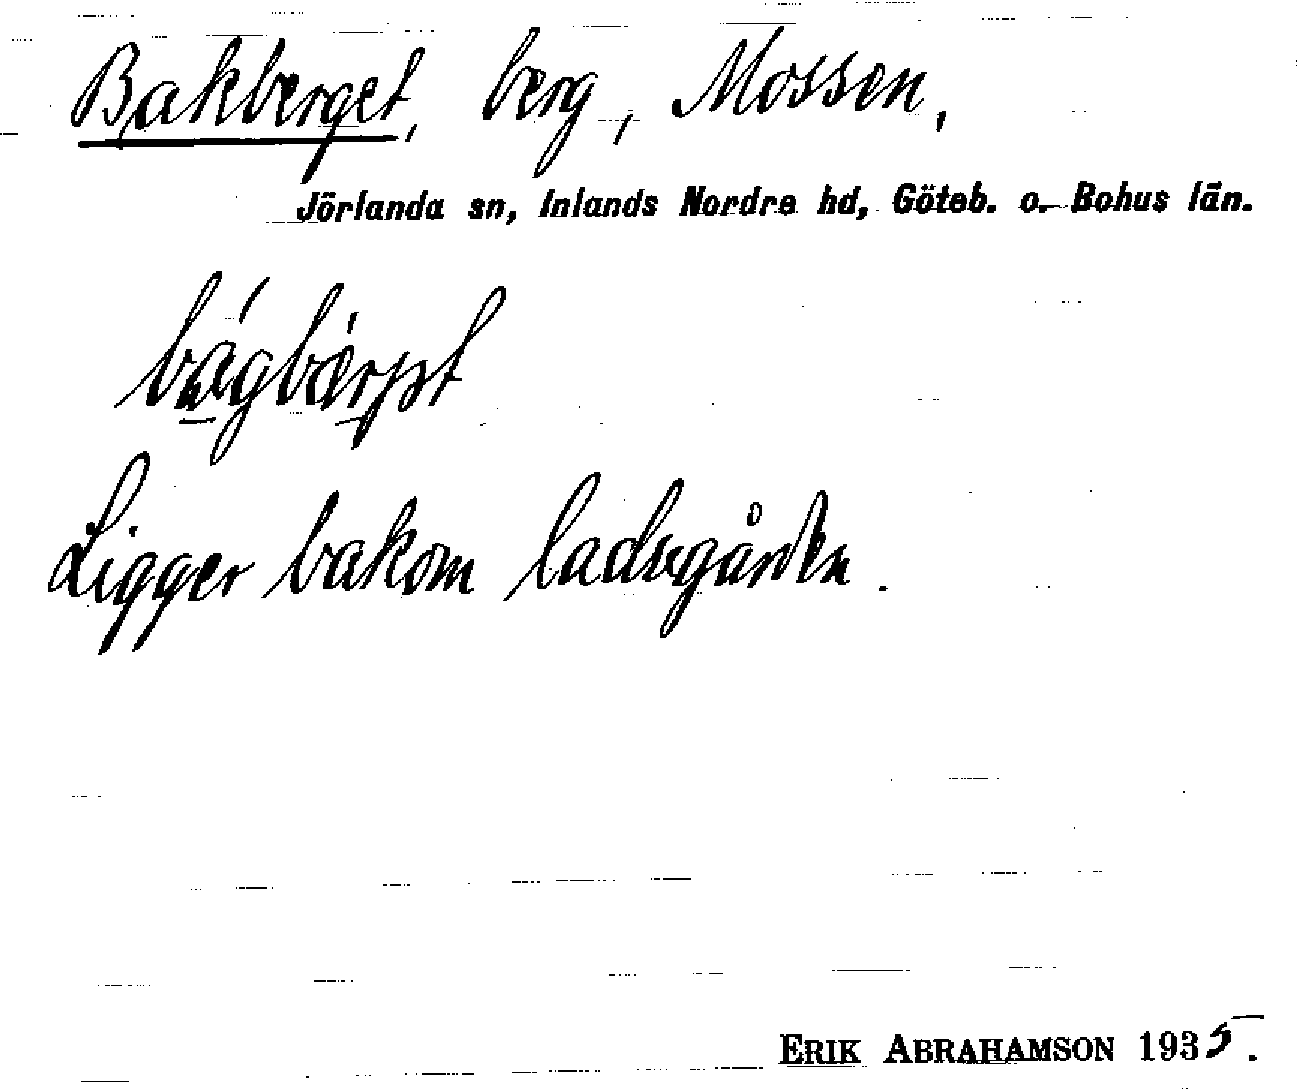 Bakberget, berg, Mossen,
Jörlanda sn, Inlands Nordre hd, Göteb. o. Bohus län.
Ligger bakom ladugården.
ERIK ABRAHAMSON 1935.